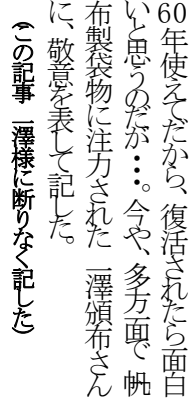 60年使えてだから、復活されたら面白
いと思うのだが・・・。今や、多方面で 帆
布製袋物に注力された 一澤頒布さん
に、敬意を表して記した。
(この記事 一澤様に断りなく記した)